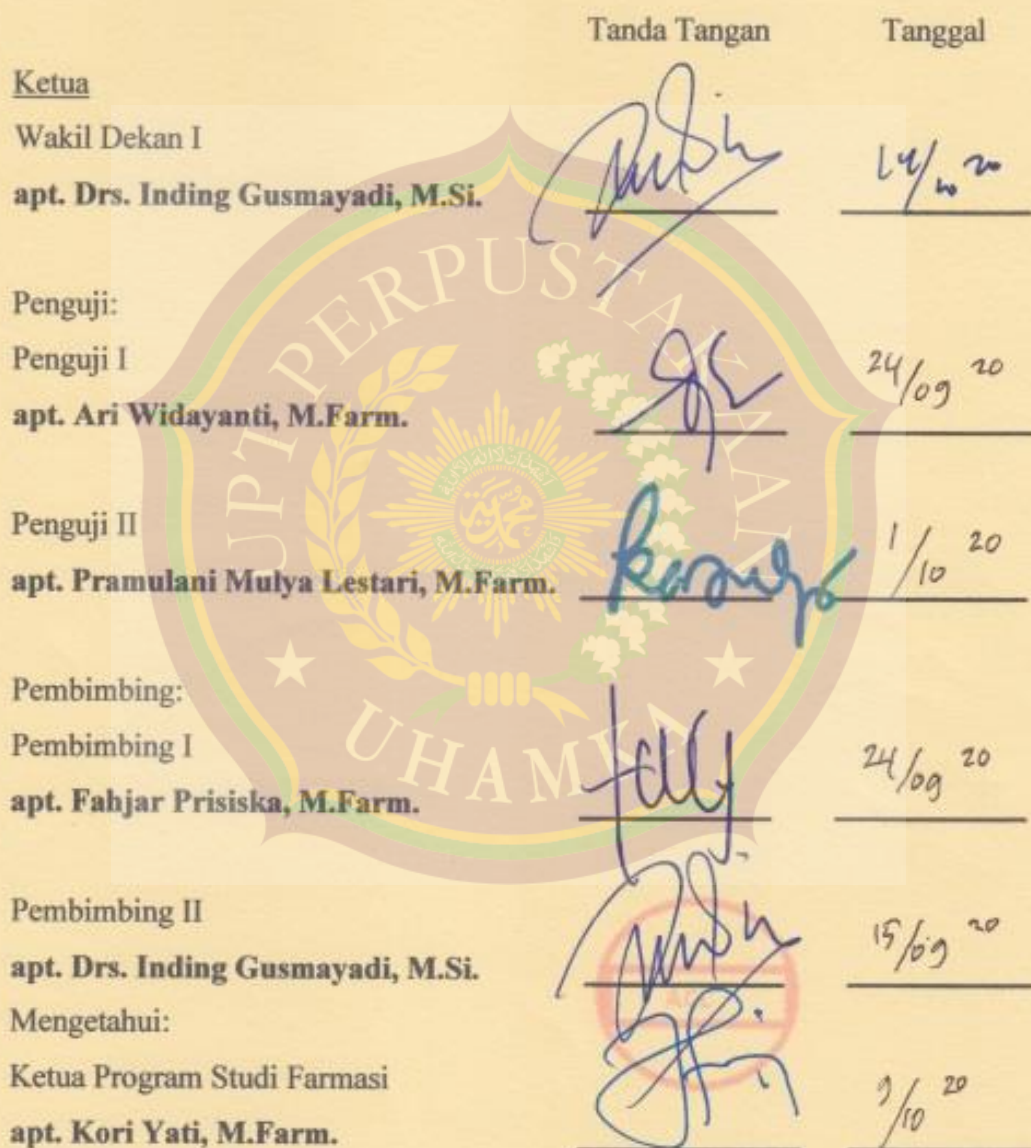 Tanda Tangan Tanggal
Ketua
Wakil Dekan I
apt. Drs. Inding Gusmayadi, M.Si.
14/10 20
Penguji:
Penguji I
apt. Ari Widayanti, M.Farm.
24/09 20
Penguji II
apt. Pramulani Mulya Lestari, M.Farm.
1/10 20
Pembimbing:
Pembimbing I
apt. Fahjar Prisiska, M.Farm.
24/09 20
Pembimbing II
apt. Drs. Inding Gusmayadi, M.Si.
15/09 20
Mengetahui:
Ketua Program Studi Farmasi
apt. Kori Yati, M.Farm.
9/10 20
UPT PERPUSTAKAAN
UHAMKA
محمدية